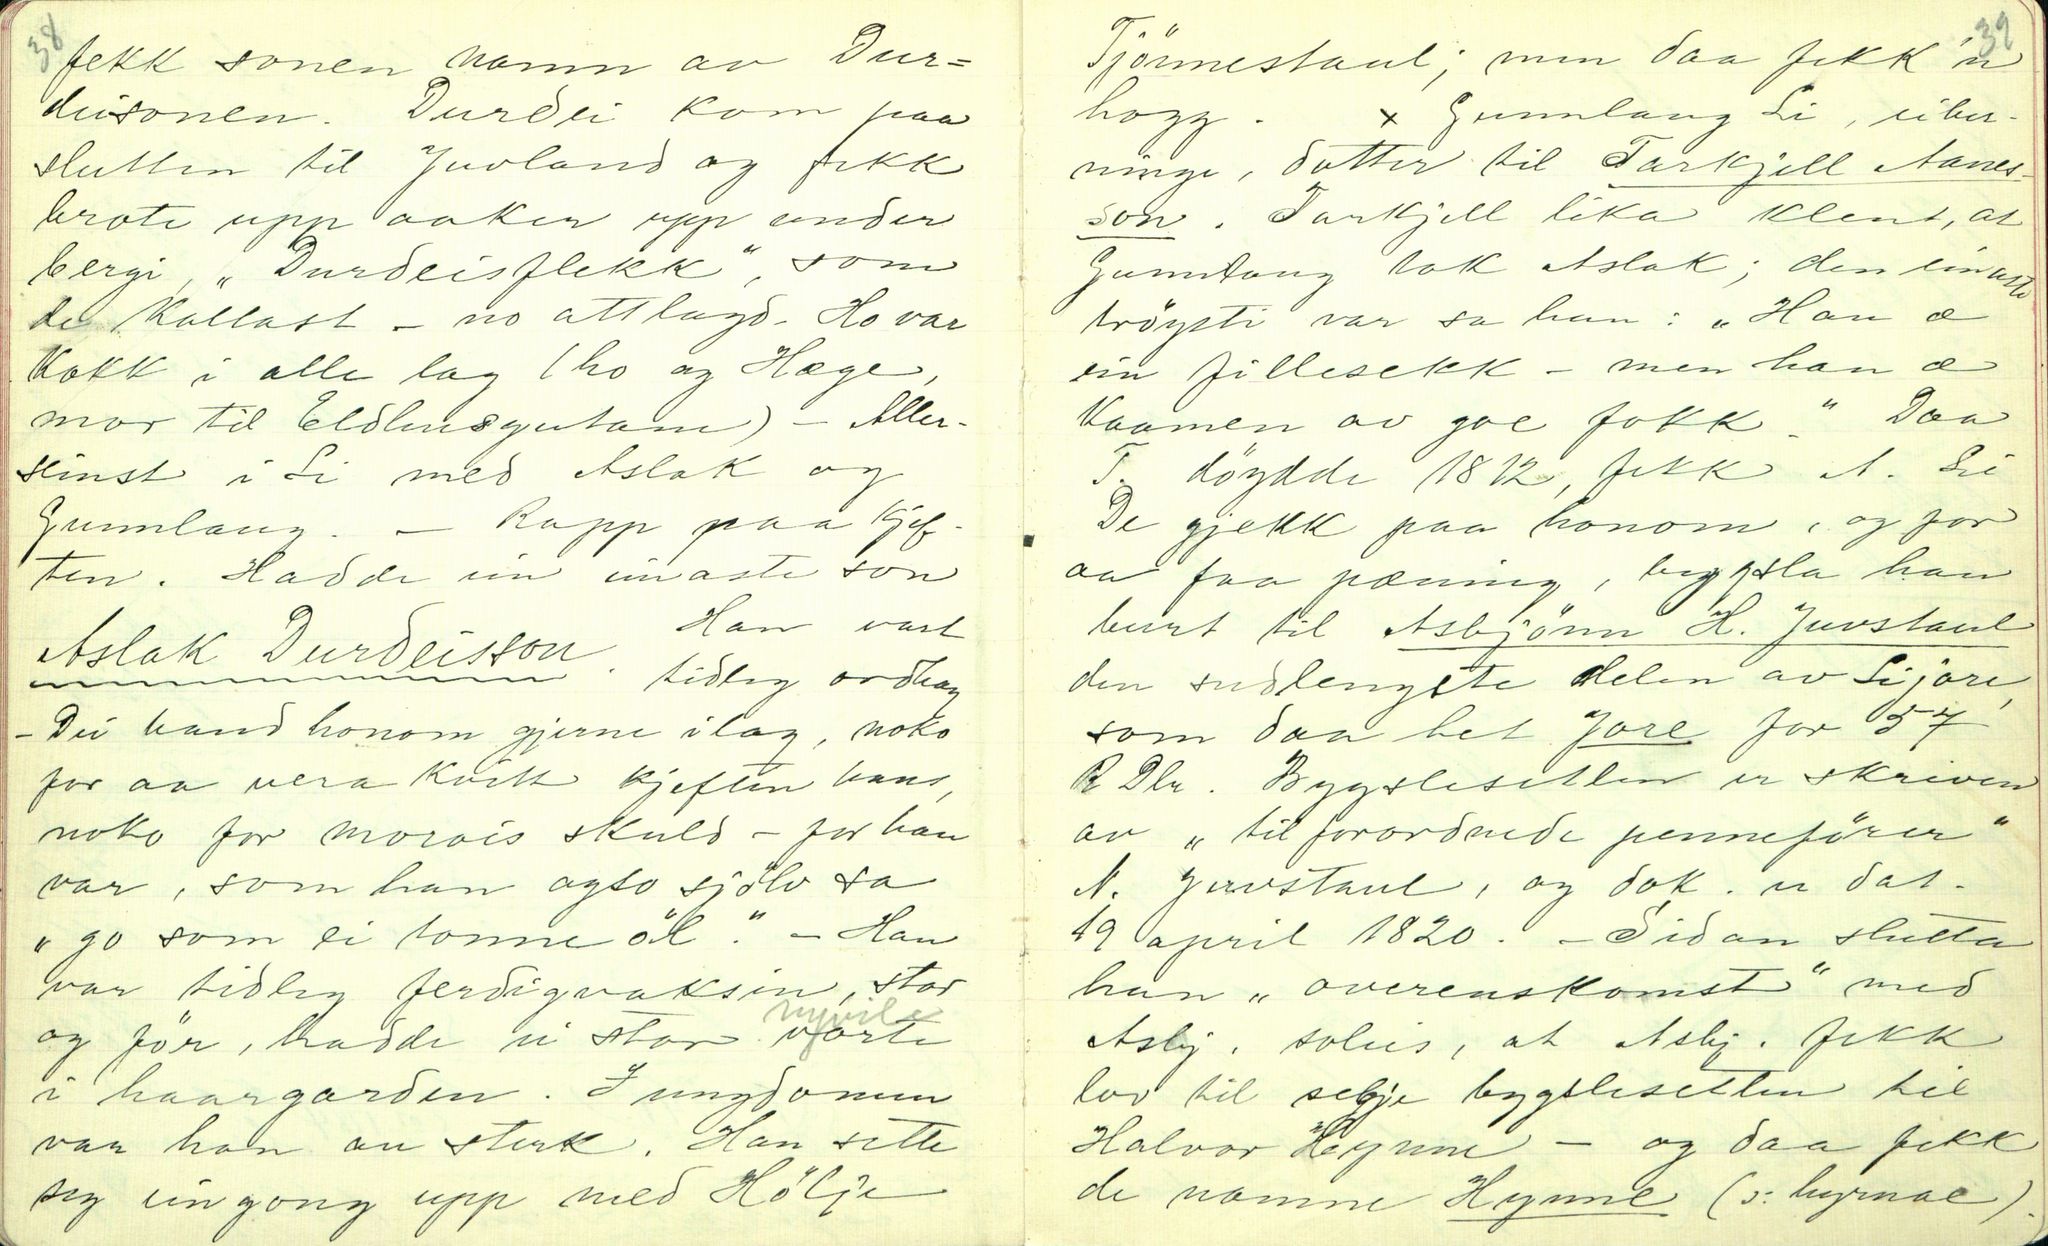 38
fekk sonen namn av Dur-
deisonen. Durdei kom paa
slutten til Juvland og fekk
brote upp aaker upp under
bergi, „Durdeisflekk“, som
de kallast – no attlagd – Ho var
kokk i alle lag (ho og Hæge,
mor til Eldhusgutane) – Aller-
seinst i Li med Aslak og
Gunnlaug. – Rapp paa kjef-
ten. Hadde ein einaste son
Aslak Durdeisson. Han vart
tidleg ordhag
– Dei baud honom gjerne i lag, noko
for aa vera kvitt kjeften hans,
noko for morois skuld – for han
var, som han ogso sjölv sa
„go som ei tonne öl.“ – Han
var tidleg ferdigvaksin, stor
og för, hadde ei stor vorte
i haargarden. I ungdomen
var han au sterk. Han sette
seg ein gong upp med Hölje
39
Tjönnestaul; men daa fekk 'n
hogg. x Gunnlaug Li,
ninge, dotter til Tarkjell Aanes-
son. Tarkjell lika klent, at
Gunnlaug tok Aslak; den einaste
tröysti var sa han: „Han æ
ein fillesekk – men han æ
kaamen av goe fokk“. Daa
T. döydde 1812, fekk A. Li
De gjekk paa honom, og for
aa faa pæning, bygsla han
burt til Asbjönn H. Juvstaul
den sudlengste delen av Lijore,
som daa het Jore for 57
R Dlr. Bygslesetlen er skriven
av „tilforordnede penneförer“
N. Juvstaul, og dok. er dat.
19 april 1820. – Sidan slutta
han „overenskomst“ med
Asbj. soleis, at Asbj. fekk
lov til selje bygslesetlen til
Halvor Hynne – og daa fekk
de namne Hynne (ɔ: hyrnae).